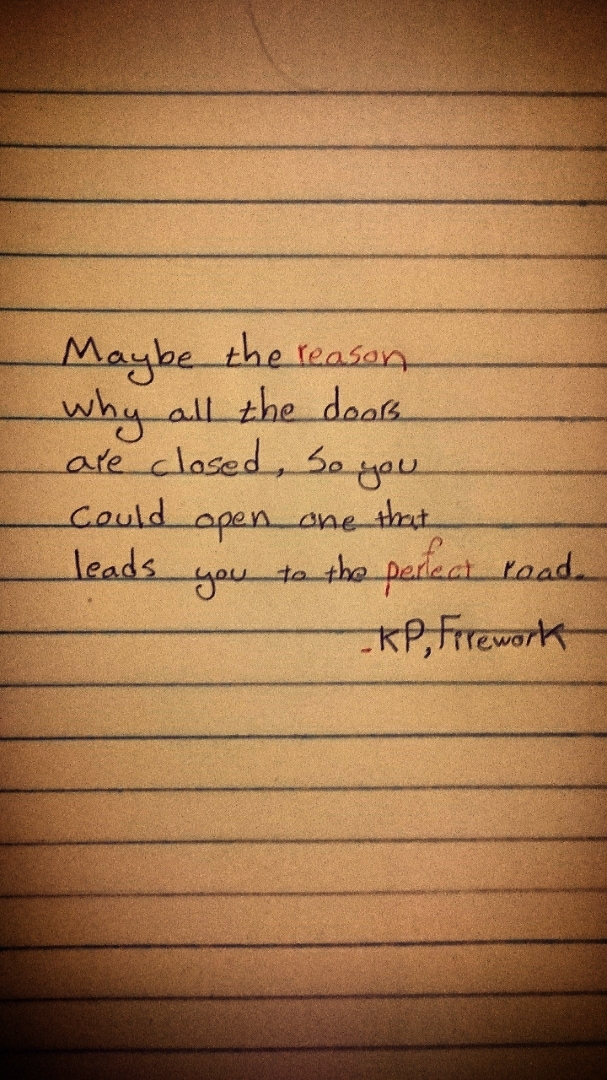 Maybe the reason
why all the doors
are closed, So you
could open one that
leads you to the perfect road.
-KP, Firework